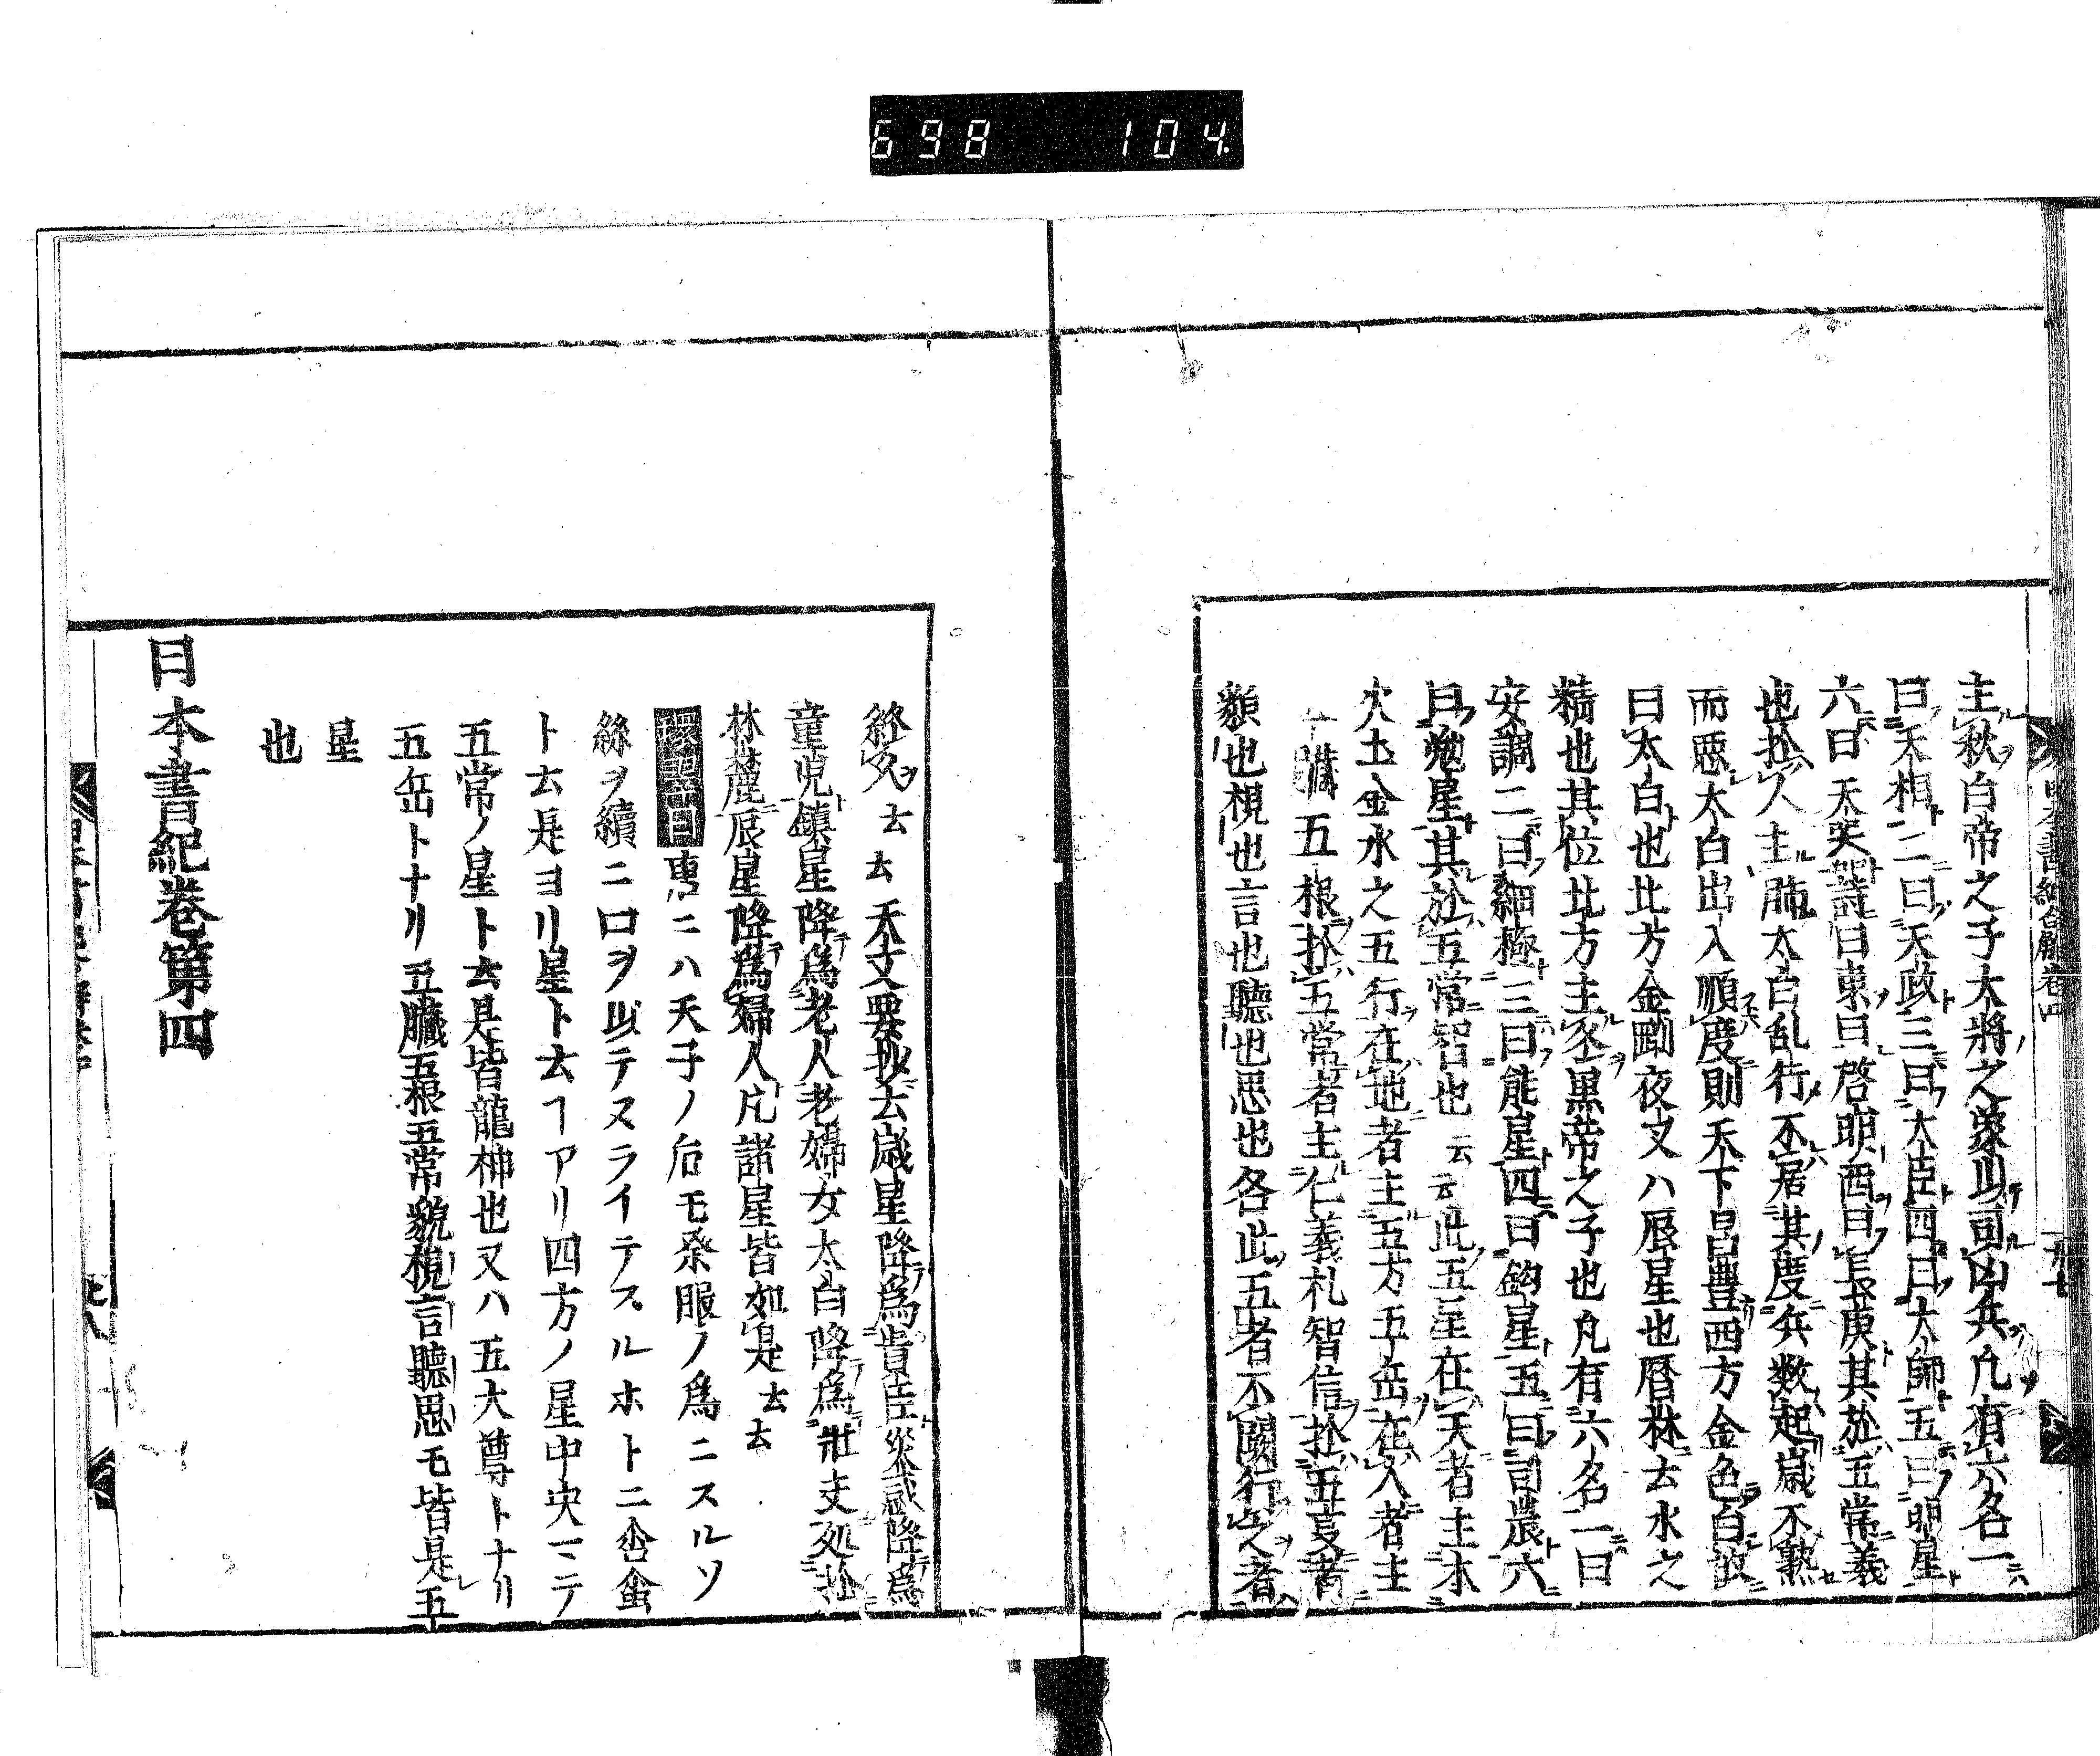 698 104
主秋白帝之子大將之象以司凶兵凡有六名一
曰天相二曰天政三曰大臣四曰大師五曰明星
六曰天哭詩曰東曰啓明西曰長庚其於五常義
也於人主肺太白乱行不居其度兵数起歳不熟
而惡太白出入順度則天下昌豊西方金色白故
曰太白也北方金剛夜叉ハ辰星也曆林云水之
精也其位北方主冬黒帝之子也凡有六名一曰
安調二曰細極三曰能星四曰鈎星五曰司農六
曰勉星其於五常智也云云此五星在天者主木
火土金水之五行在地者主五方五岳在人者主
五根於五常者主仁義礼智信於五事者
貌也視也言也聽也思也各此五者不闕行之者
終久云云天文要抄云歳星降為貴臣熒惑降為
童児鎮星降為老人老婦女太白降為壯夫処於
林麓辰星降為婦人凡諸星皆如是云云
環翠曰専ニハ天子ノ后モ祭服ノ為ニスルソ
絲ヲ續ニ口ヲ以テスライテスルホトニ含蚕
ト云是ヨリ星ト云ヿアリ四方ノ星中央ニテ
五常ノ星ト云是皆龍神也又ハ五大尊トナリ
五岳トナリ五臓五根五常貌視言聽思モ皆是五
星
也
日本書紀卷第四